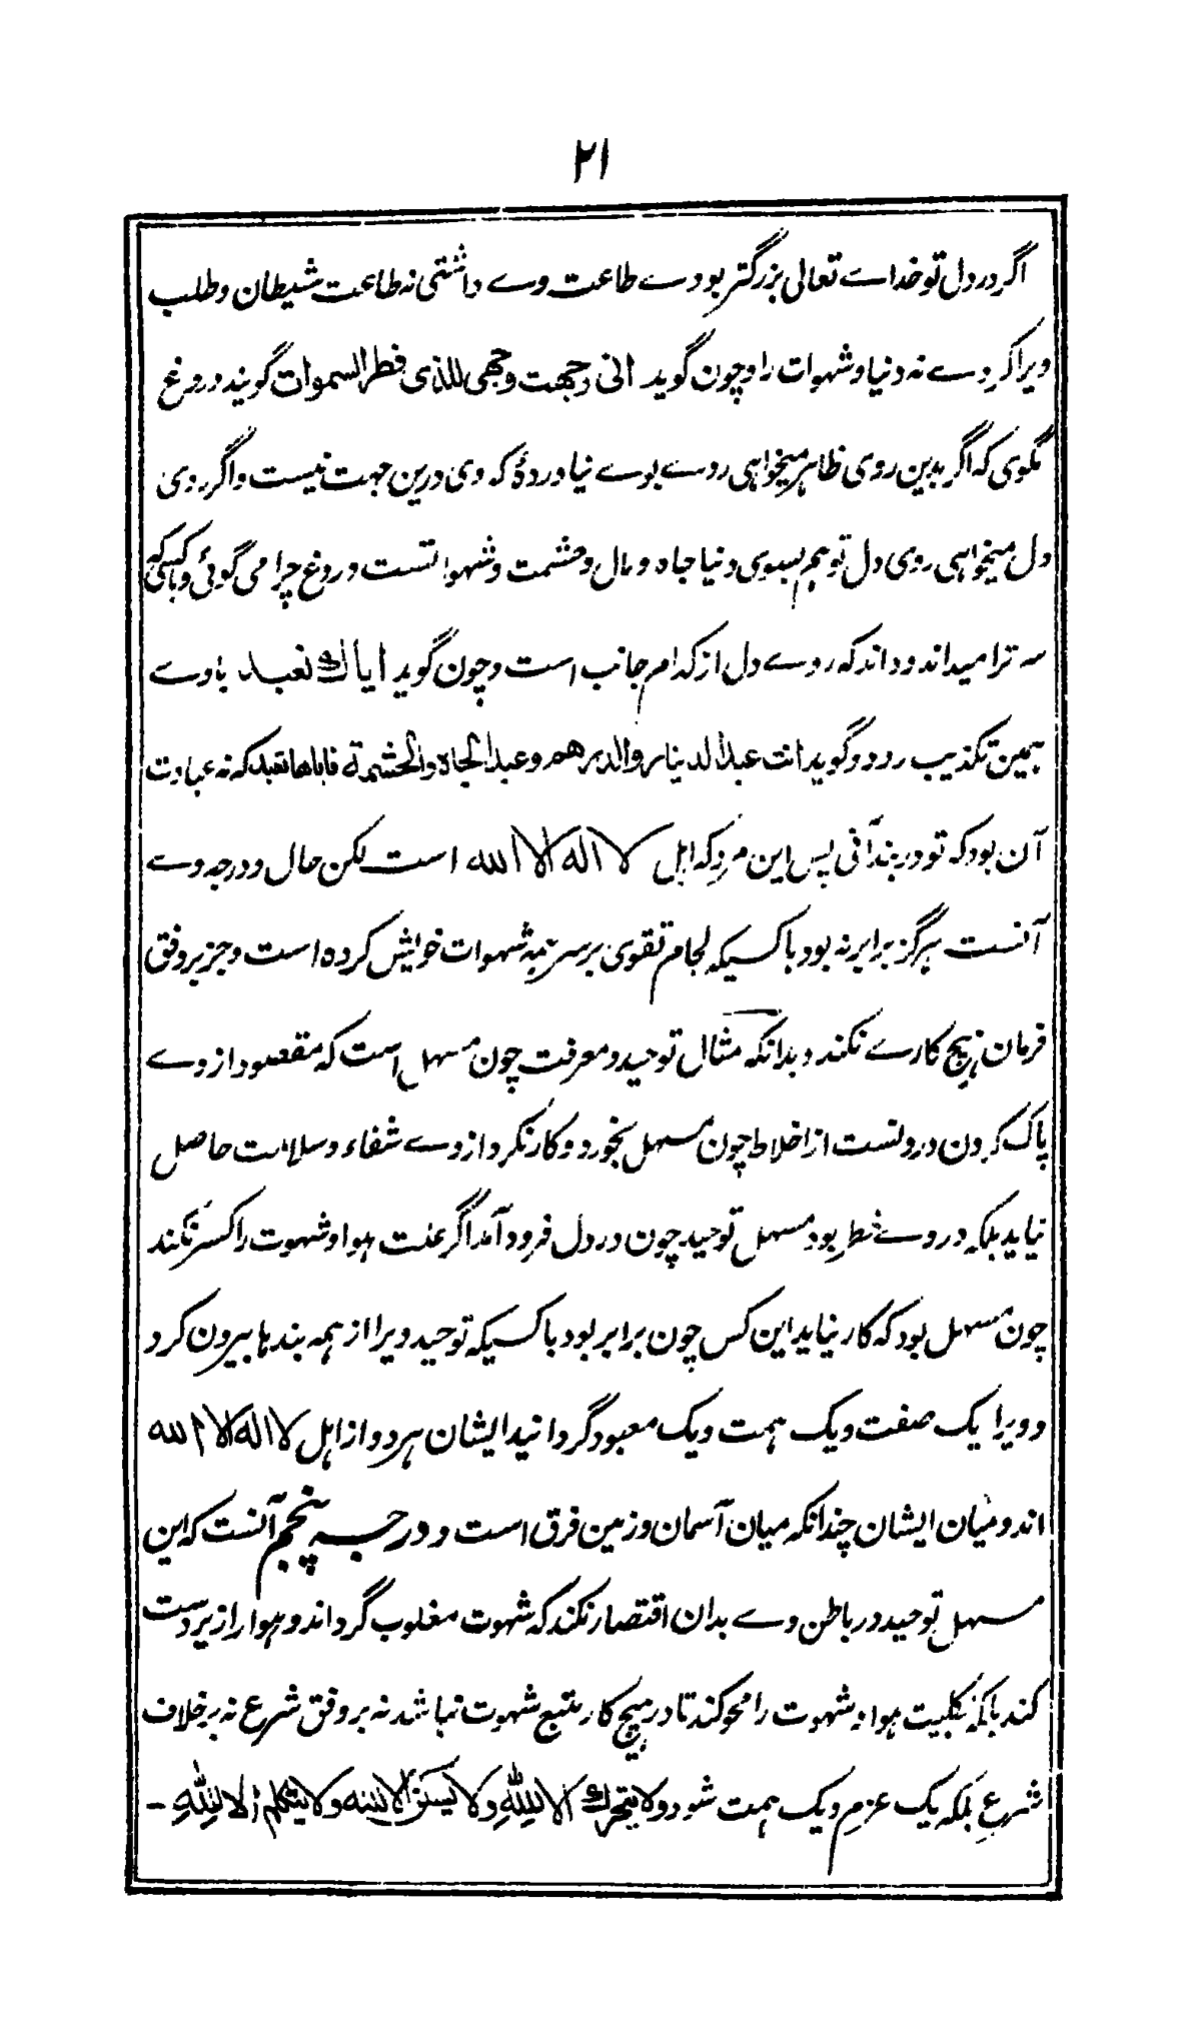 ۲۱
اگر در دل تو خداے تعالی بزرگتر بودے طاعت وے داشتی نہ طاعت شیطان و طلب
ویرا کردے نہ دنیا و شہوات را و چون گوید انی وجهت وجهی للذی فطر السموات گویند دروغ
نگوی کہ اگر بدین روی ظاہر میخواہی روے بوے نیاوردۂ کہ وی درین جہت نیست و اگر روی
دل میخواہی روی دل تو ہم بسوی دنیا جاہ و مال و حشمت و شہوا تست دروغ چرا می گوئی و باکسی کہ
سر ترا میداند و داند کہ روے دل از کدام جانب است و چون گوید ایاك نعبد باوے
ہمین تکذیب رود و گوید انت عبد الدینار والدرهم وعبد الجاه والحشمة کہ نہ عبادت
آن بود کہ تو در بند آنی پس این مرد کہ اہل لا اله الا الله است لکن حال و درجہ وے
آنست ہرگز برابر نہ بود با کسیکہ لجام تقوی بر سر ہمہ شہوات خویش کردہ است و جز بر وفق
فرمان ہیچ کارے نکند و بدانکہ مثال توحید و معرفت چون مسہل است کہ مقصود از وے
پاک کردن درونست از اخلاط چون مسہل بخورد و کار نکرد از وے شفاء و سلامت حاصل
نیاید بلکہ در وے خطر بود مسہل توحید چون در دل فرود آمد اگر علت ہوا و شہوت را کسر نکند
چون مسہل بود کہ کار نیاید این کس چون برابر بود با کسیکہ توحید ویرا از ہمہ بندہا بیرون کرد
و ویرا یک صفت و یک ہمت و یک معبود گردانید ایشان ہر دو از اہل لا اله الا الله
اند و میان ایشان چندانکہ میان آسمان و زمین فرق است و درجہ پنجم آنست کہ این
مسہل توحید در باطن وے بدان اقتصار نکند کہ شہوت مغلوب گرداند و ہوا را زیردست
کند بلکہ بکلیت ہوا و شہوت را محو کند تا در ہیچ کار متبع شہوت نباشد نہ بر وفق شرع نہ بر خلاف
شرع بلکہ یک عزم و یک ہمت شود ولا یتحرك الا لله ولا یسکن الا لله ولا یتکلم الا لله -